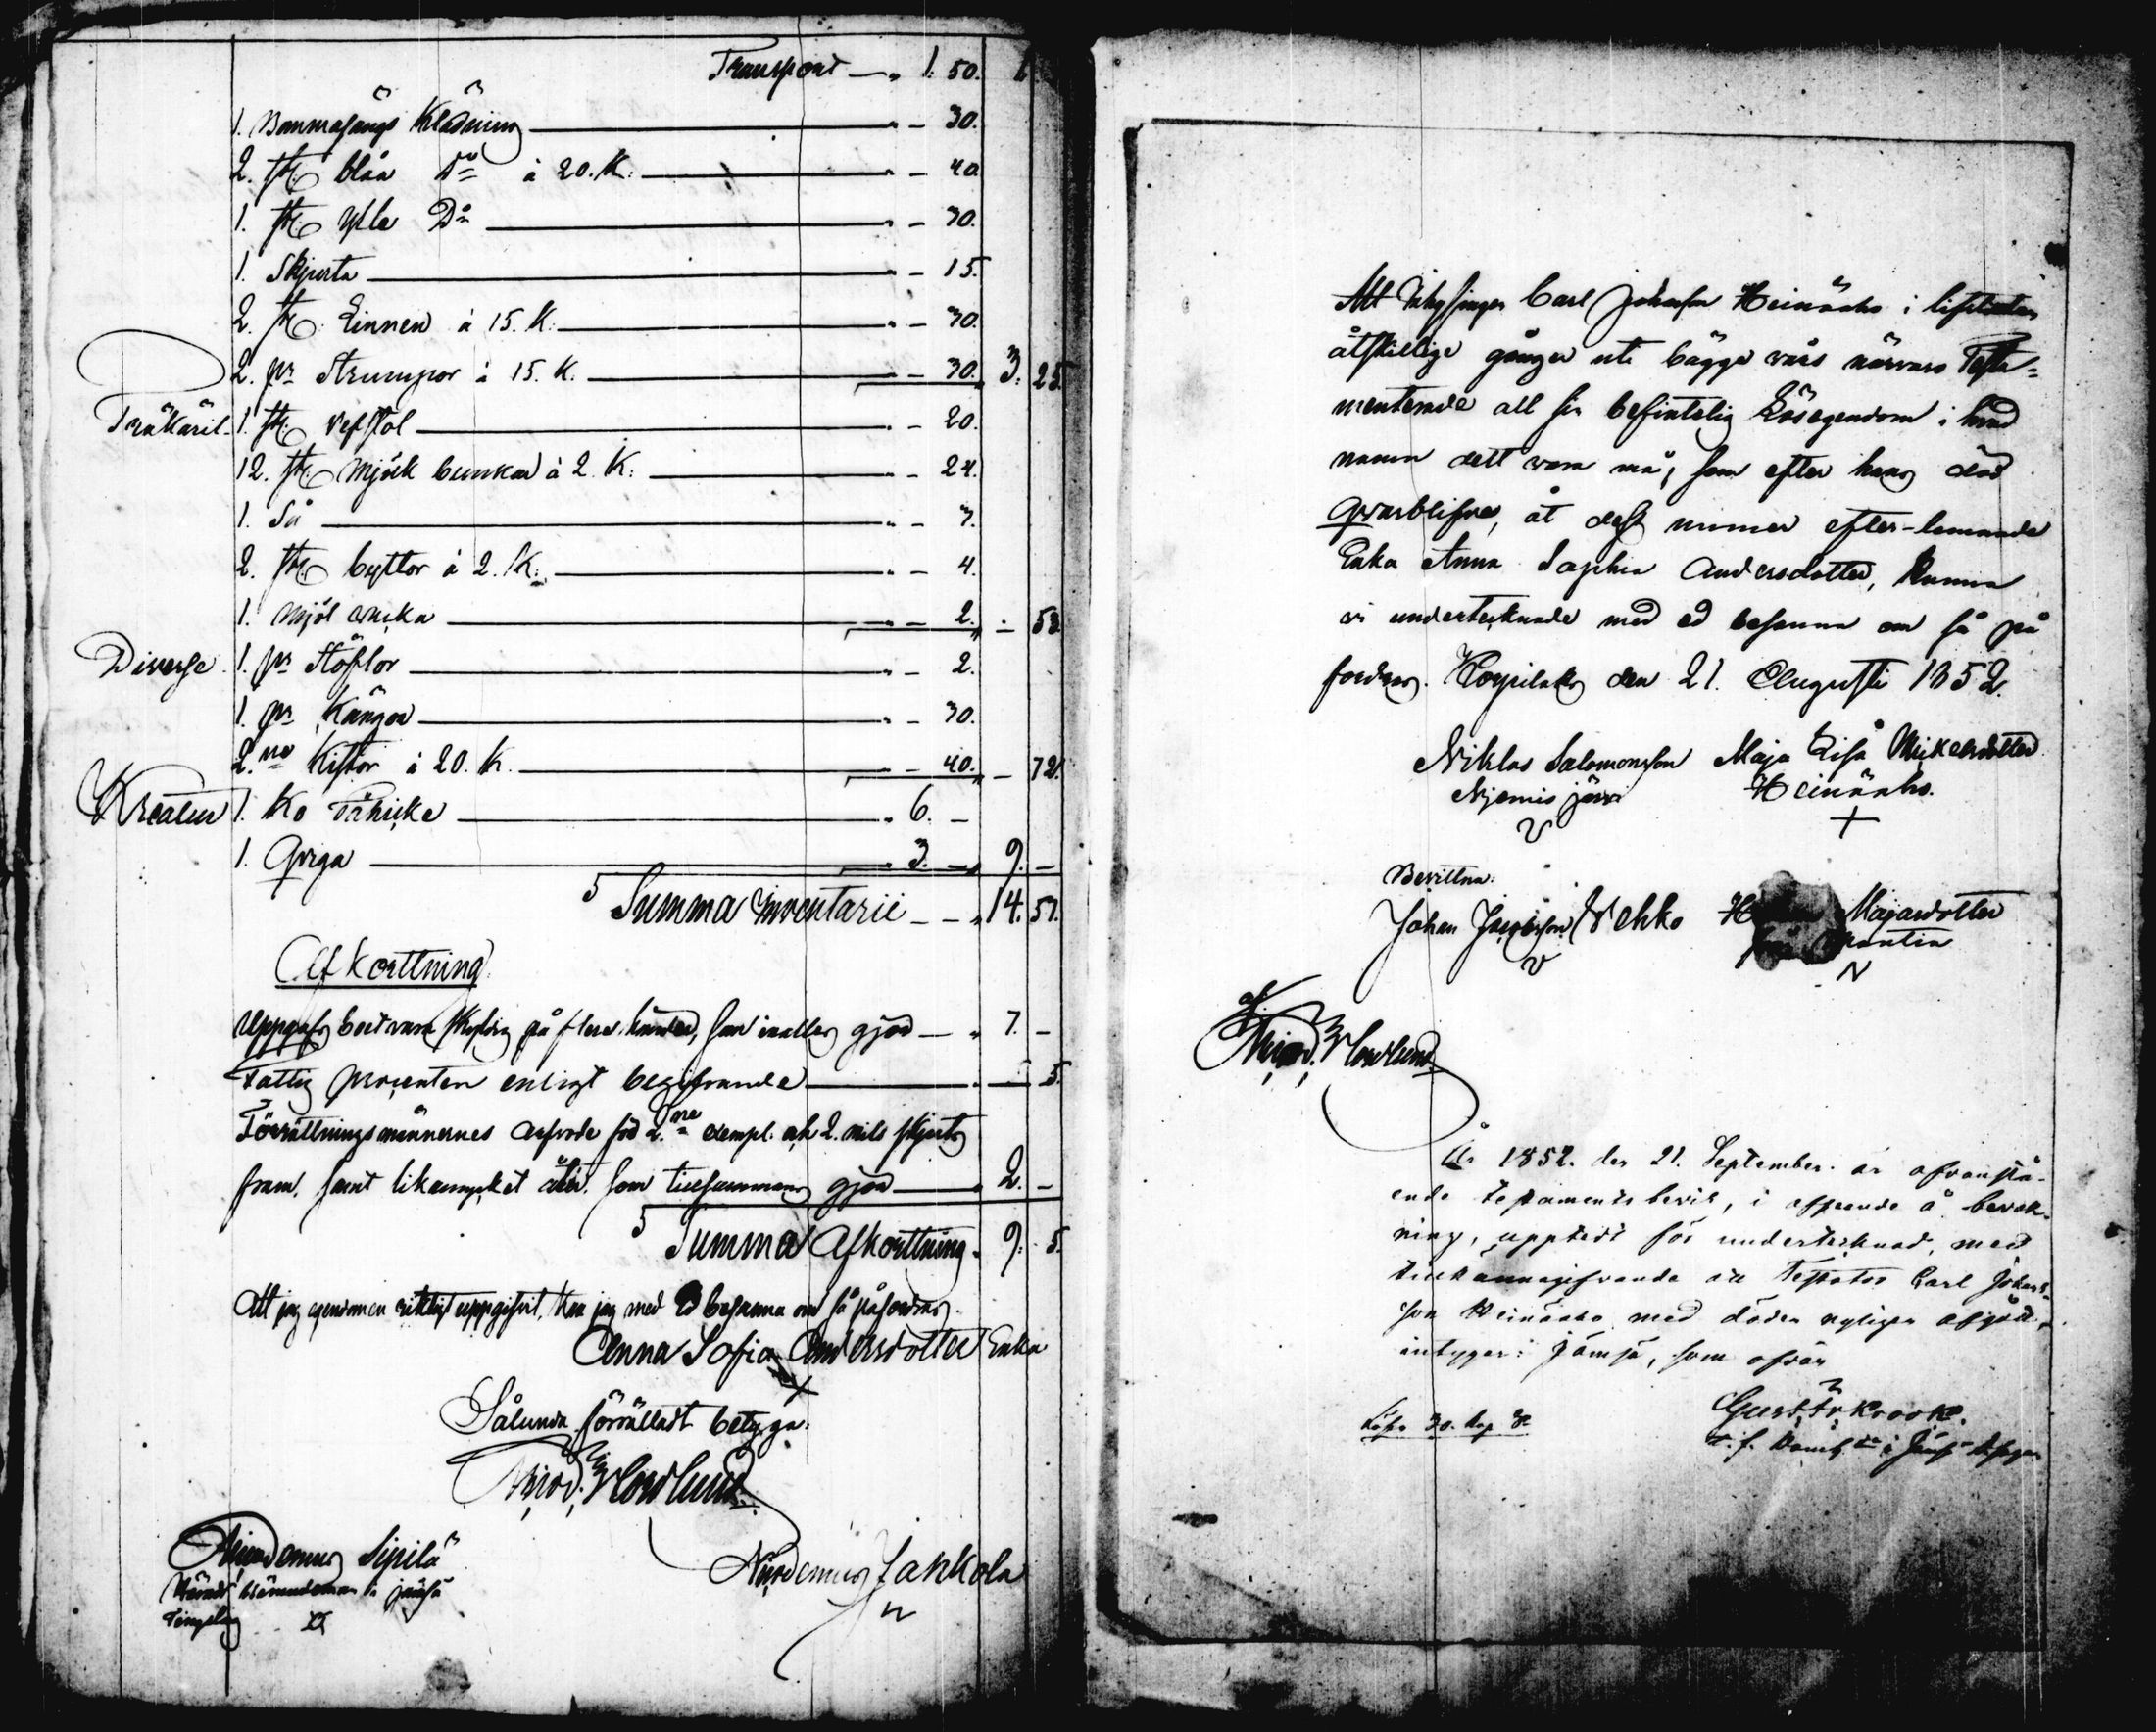 Transport — " 1. 50. 1.
1. Bommasängs Klädning — " — 30.
2. st. blåa Do à 20. K. — " — 40.
1. st. ylle Do — " — 30.
1. Skjorta — " — 15.
2. st. Linnen à 15. K. — " — 30.
2. pr Strumpor à 15. K. — " — 30. " 3. 25.
Träkäril. 1. st. Vefstol — " — 20.
12. st. Mjölk bunkar à 2. K. — " — 24.
1. Så — " — 3.
2. st. byttor à 2. K. — " — 4.
1. Mjöl — " — 2. " — 53.
Diverse. 1. pr Stöflor — " — 2.
1. pr Kängor — " — 30.
2.ne Kistor à 20. K. — " — 40. " — 72.
Kreatur 1. Ko — " 6. —
1. Qviga — " 3. — " 9. —
Summa Inventarii — — " 14. 51.
Afkorttning.
på flere händer, som inalles gjör — " 7. —
Fattig procenten enligt — " — 5.
Förrättningsmännernes arfvode för 2.ne exempl. och 2. mils skjuts
fram. samt likamycket åter. som tillsammans gjör — " 2. —
Summa Afkorttning. " 9. 5.
Att jag egendomen riktigt uppgifvit, kan jag med Ed besanna om så påfordras.
Anna Sofia Andersdotter Enka
X
Sålunda förrättadt betyga:
Nicod. Nordlund.
Nicodemus Sipilä
Nicodemus Jakkola
Härads i Jämsä
Tingslag
Att Carl Johansson Heinäaho i lifstiden
åtskillige gånger uti bägge vårs närvaro Testa=
menterade all sin befintelig Lösegendom i hvad
namn dett vara må, som efter hans död
qvarblifver, åt dess numer efter-lemnade
Enka Anna Sophia Andersdotter, kunna
vi undertecknade med ed besanna om så på
fordras. Korpilaks den 21. Augusti 1852.
Niklas Salomonsson Maja Lisa Mickelsdotter
Heinäaho.
X
Bevittna:
Johan Jacobsson Vehko H Majasdotter
af
Nicod. Nordlund
År 1852. den 21. September. är ofvanstå-
ende testamentsbevis, i afseende å bevak-
ning, uppteedt för undertecknad, med
tillkännagifvande att Testator Carl Johans-
son Heinäaho med döden nyligen afgått,
intygar: Jämsä, som ofvan
Gust. Krook.
Lösen 30. kop Sr